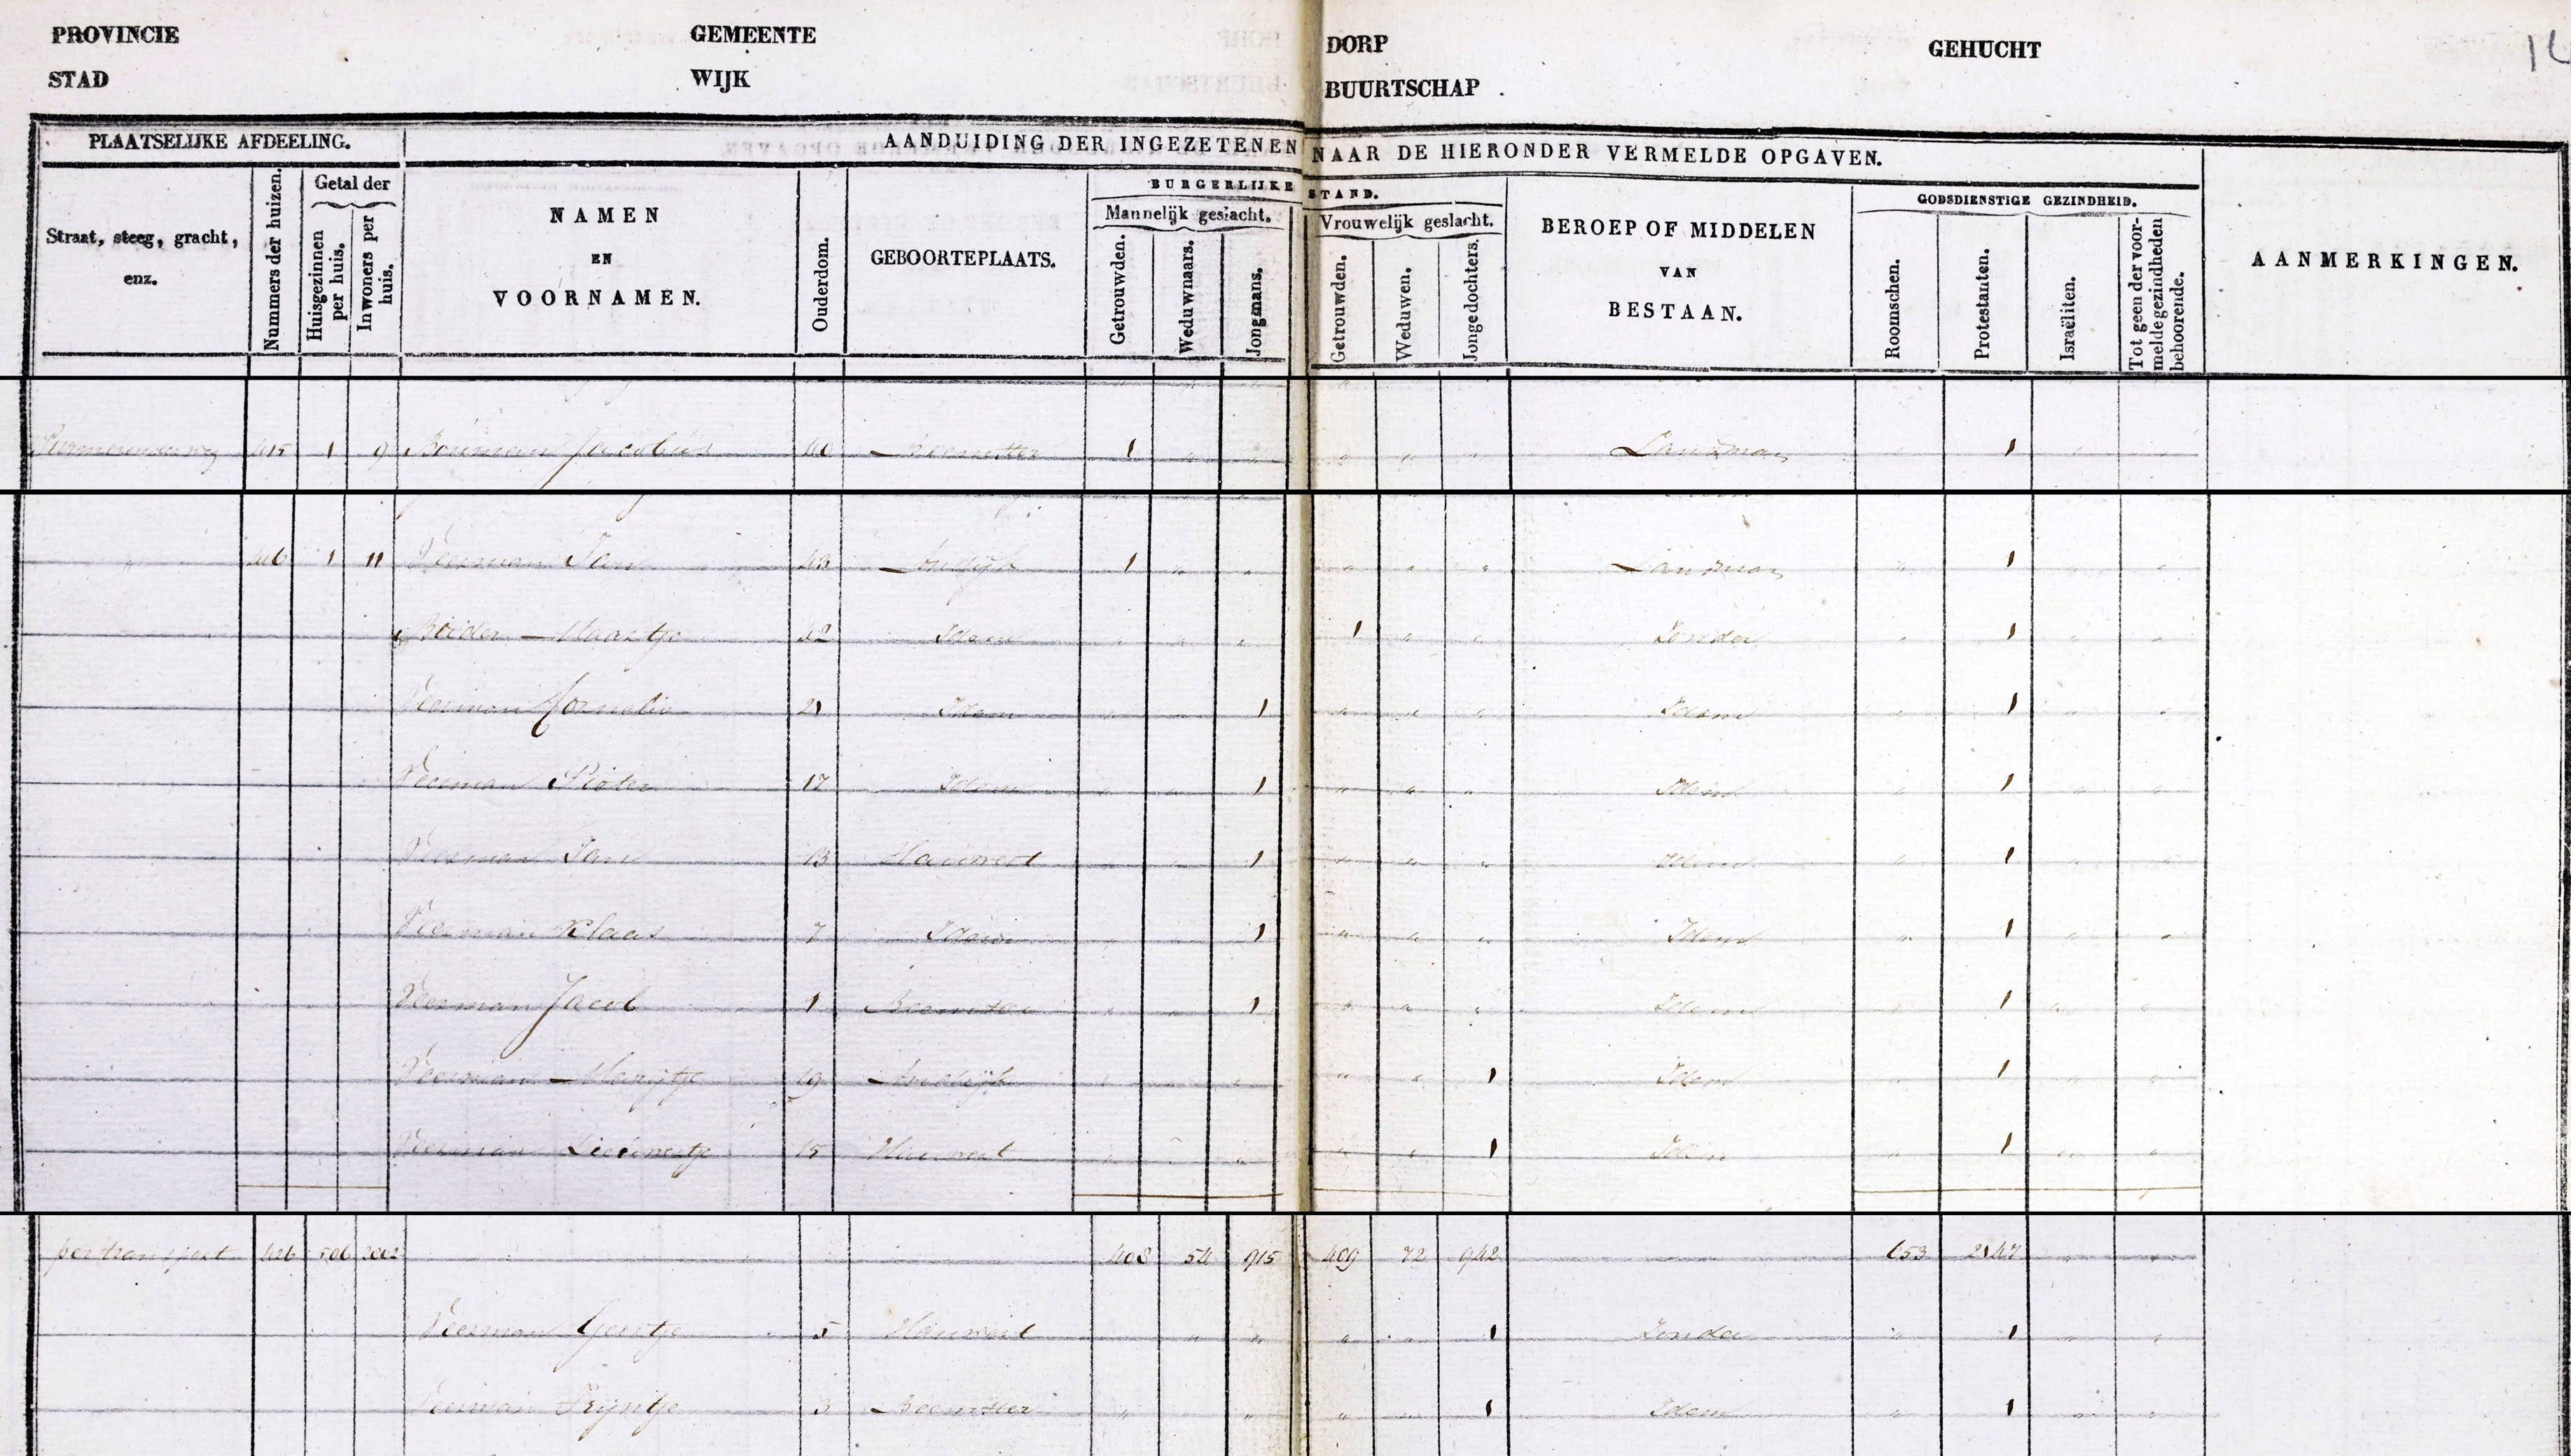 PROVINCIE GEMEENTE DORP GEHUCHT
STAD WIJK BUURTSCHAP
PLAATSELIJKE AFDEELING. AANDUIDING DER INGEZETENEN NAAR DE HIERONDER VERMELDE OPGAVEN.
Straat, steeg, gracht, enz. Nummers der huizen. Getal der Huisgezinnen per huis. Inwoners per huis. NAMEN EN VOORNAMEN. Ouderdom. GEBOORTEPLAATS. BURGERLIJKE STAND. Mannelijk geslacht. Getrouwden. Weduwnaars. Jongmans. Vrouwelijk geslacht. Getrouwden. Weduwen. Jongedochters. BEROEP OF MIDDELEN VAN BESTAAN. GODSDIENSTIGE GEZINDHEID. Roomschen. Protestanten. Israëliten. Tot geen der voormelde gezindheden behoorende. AANMERKINGEN.
Purmerenderweg 415 1 9 Bouman Jacobus 40 Beemster 1 " " " " " Landman " 1 " "
" 416 1 11 Veerman Jan 43 Andijk 1 " " " " " Landman " 1 " "
Maartje 42 Idem " " " 1 " " Zonder " 1 " "
Veerman Cornelis 21 Idem " " 1 " " " Idem " 1 " "
Veerman Pieter 17 Idem " " 1 " " " Idem " 1 " "
Veerman Jan 13 Hauwert " " 1 " " " Idem " 1 " "
Veerman Klaas 7 Idem " " 1 " " " Idem " 1 " "
Veerman Jacob 1 Beemster " " 1 " " " Idem " 1 " "
Veerman Marijtje 19 Andijk " " " " 1 Idem " 1 " "
Veerman 15 Hauwert " " " " " 1 Idem " 1 " "
per transport 426 506 408 54 915 409 72 942 653 2147 " "
Veerman Geertje 5 Hauwert " " " " 1 Zonder " 1 " "
Veerman Trijntje 3 Beemster " " " " 1 Idem " 1 " "